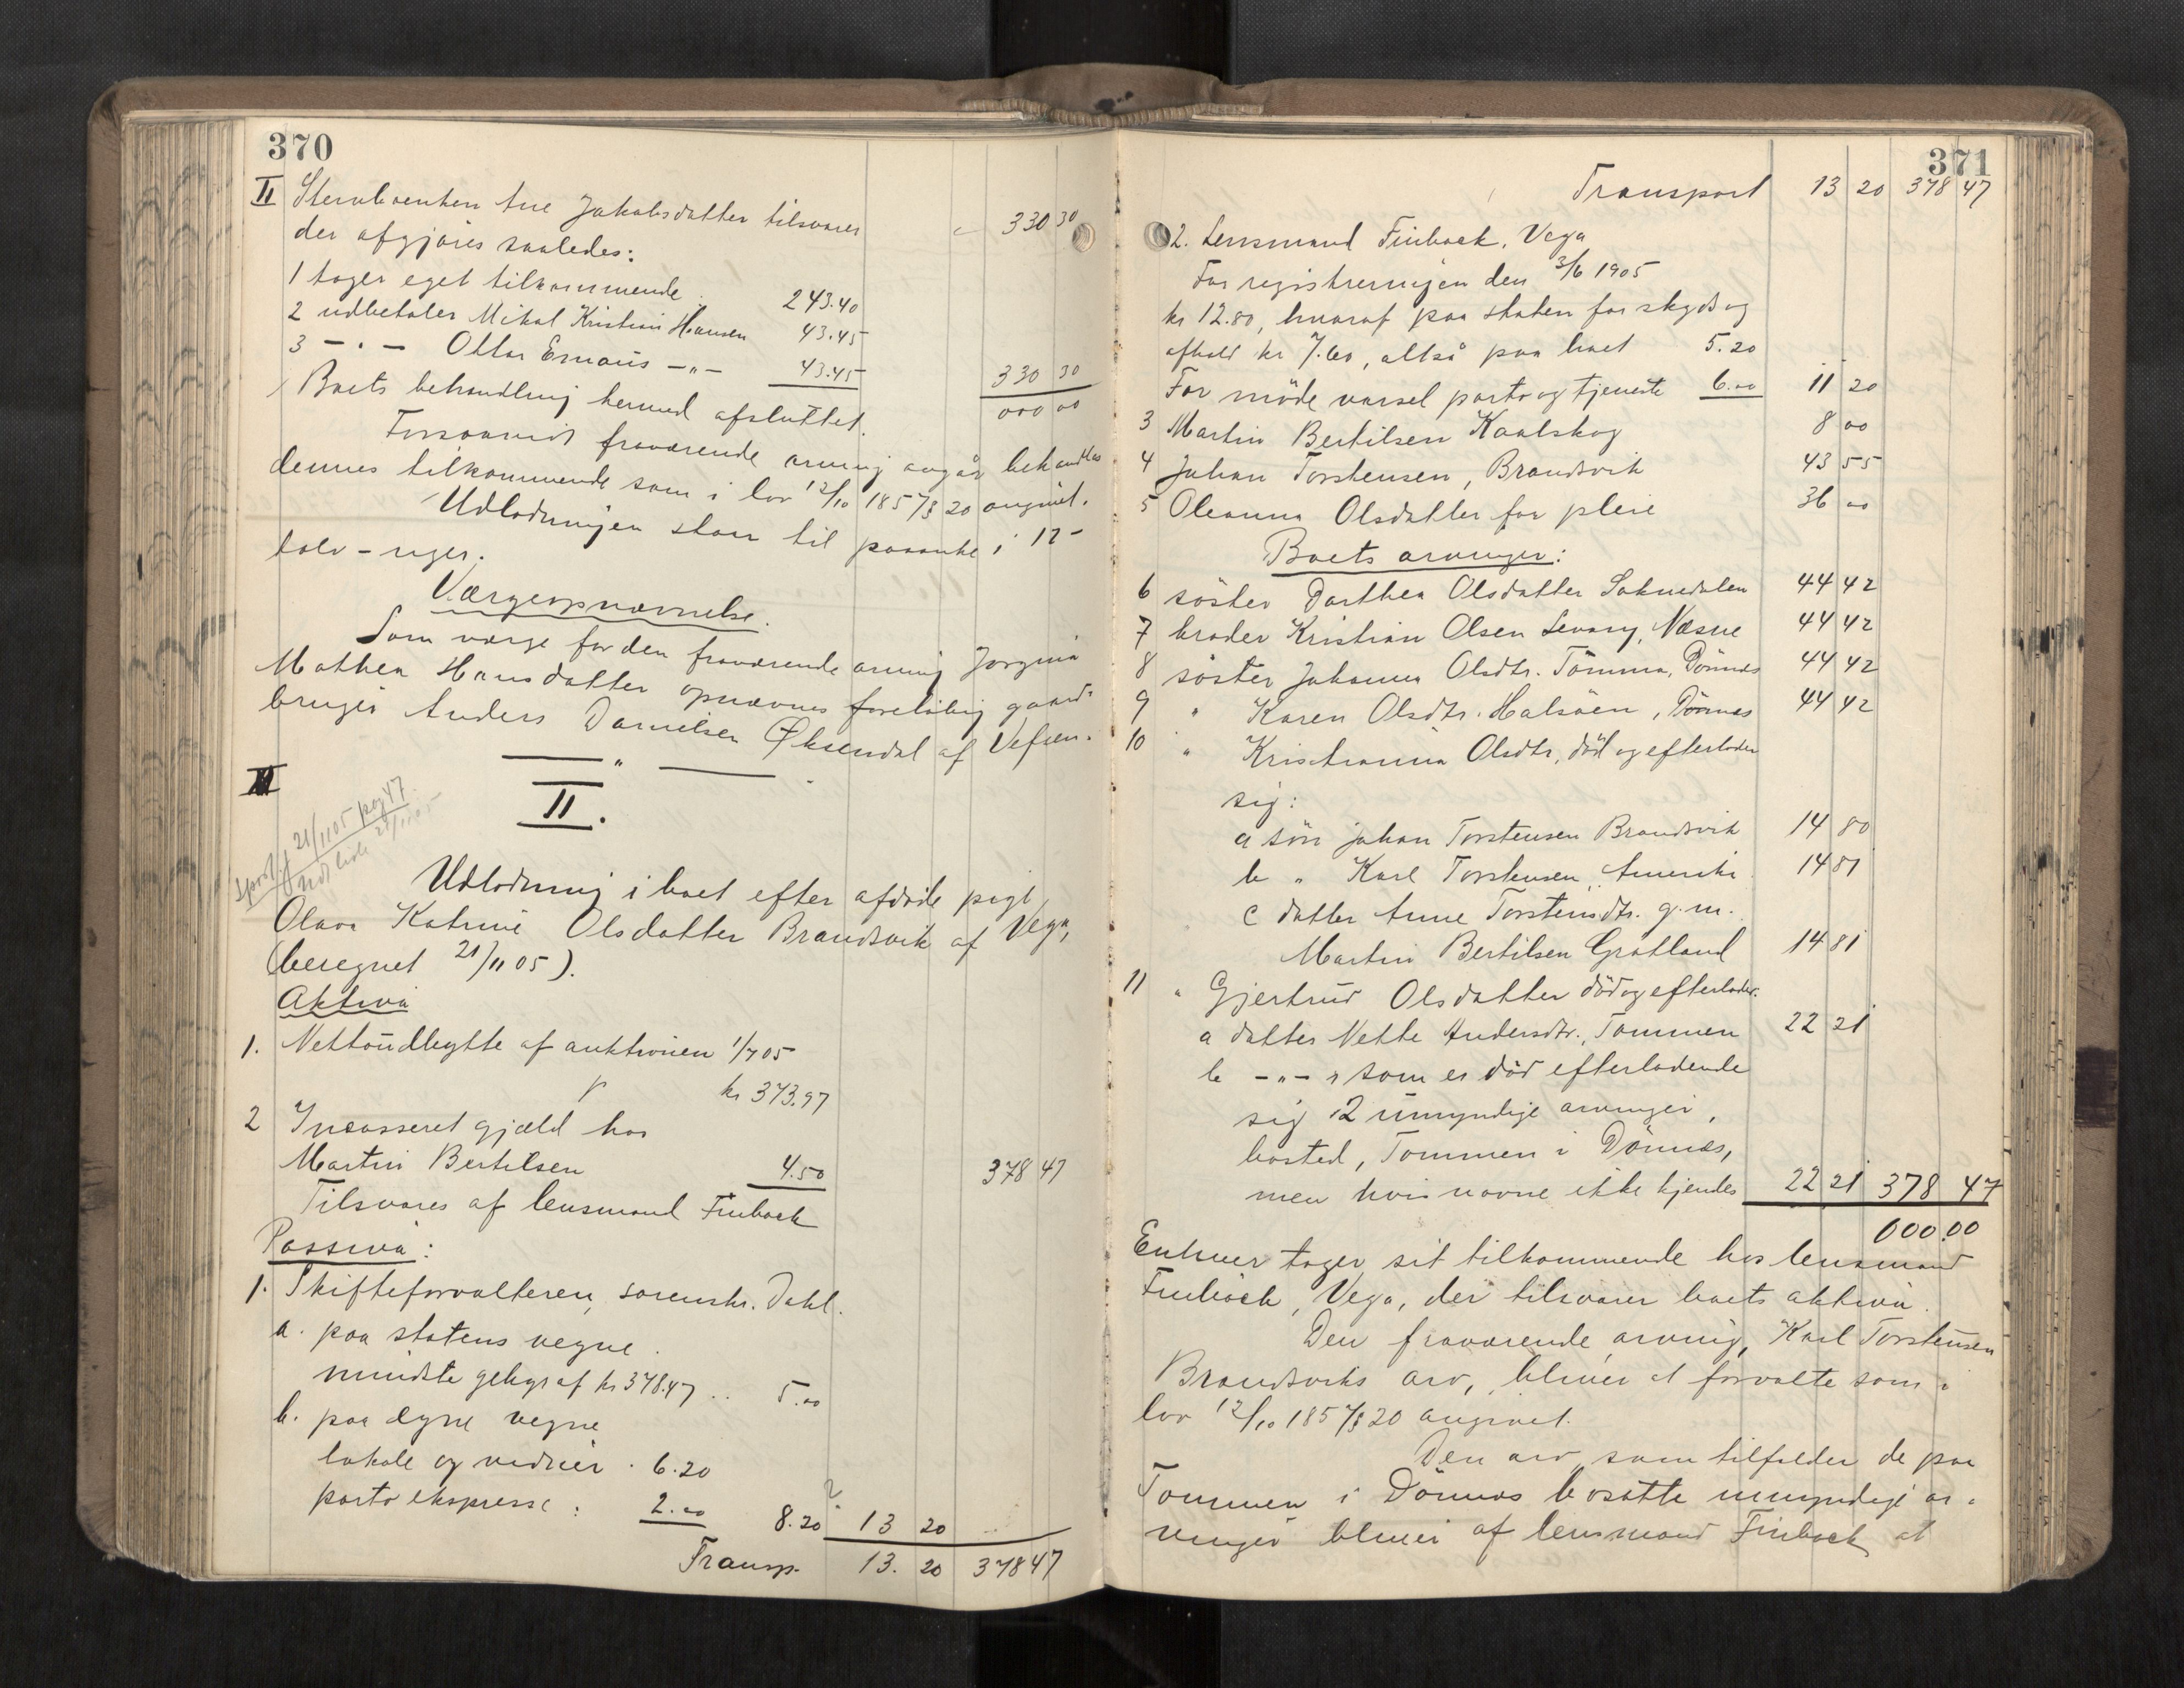 370
II Sterkboenken Ane Jakobsdatter tilsvarer 330 30
der afgjøres saaledes:
1 tager eget tilkommende . 243.40
2 udbetaler Mikal Kristian Hansen 43.45
3 — " — Ottar Emaus — " — 43.45 330 30
Boets behandling hermed afsluttet. 000 00
Forsaavidt fraværende arving angår behandles
dennes tilkommende som i lov 12/10 1857 § 20 angivet.
Udlodningen staar til paaanke i 12-
tolv-uger.
Værgeopnævnelse.
Som værge for den fraværende arving Jørgine
Mathea Hansdatter opnævnes foreløbig gaard-
bruger Anders Danielsen Øksendal af Vefsen.
II.
21/11 05 pag 47
Udlodning i boet efter afdøde pige
Olava Katrine Olsdatter Brandsvik af Vega,
(beregnet 21/11 05).
Aktiva
1. Nettoudbytte af auktionen 1/7 05
kr 373.97
2 Incasseret gjæld hos
Martin Bertilsen 4.50 378 47
Tilsvares af lensmand Finback
Passiva:
1. Skifteforvalteren, sorenskr. Dahl.
a. paa statens vegne.
mindste gebyr af kr 378.47 .. 5.00
b. paa egne vegne
lokale og vidner . 6.20
porto ekspresse : 2.00 8.20 13 20
Transp. 13. 20 378 47
371
Transport 13 20 378 47
2. Lensmand Finback, Vega
For registreringen den 3/6 1905
kr 12.80, hvoraf paa staten for skyds og
ophold kr 7.60, altså paa boet 5.20
For møde varsel porto og tjeneste 6.00 11 20
3 Martin Bertilsen Kaalskog 8 00
4 Johan Torstensen, Brandsvik 43 55
5 Oleanna Olsdatter for pleie 36 00
Boets arvinger:
6 søster Dorthea Olsdatter Saknedalen 44 42
7 broder Kristian Olsen Levang, Næsne 44 42
8 søster Johanna Olsdtr. Tömma, Dönnes 44 42
9 " Karen Olsdtr. Halsöen, Dönnes 44 42
10 " Kristianna Olsdtr, död og efterlader
sig:
a sön Johan Torstensen Brandsvik 14 80
b " Karl Torstensen, Amerika 14 81
c datter Anne Torstensdtr. g. m.
Martin Bertilsen Grøtland 14 81
11 " Gjertrud Olsdatter död og efterlader.
a datter Nette Andersdtr., Tommen 22 21
b — " — " som er död efterladende
sig 2 umyndige arvinger,
bosted, Tommen i Dönnes,
men hvis navne ikke kjendes 22 21 378 47
000.00
Enhver tager sit tilkommende hos lensmand
Finback, Vega, der tilsvarer boets aktiva.
Den fraværende arving, Karl Torstensen
Brandsviks arv, bliver at forvalte som i
lov 12/10 1857 § 20 angivet.
Den arv som tilfalder de paa
Tommen i Dönnes bosatte umyndige ar-
vinger bliver af lensmand Finback at